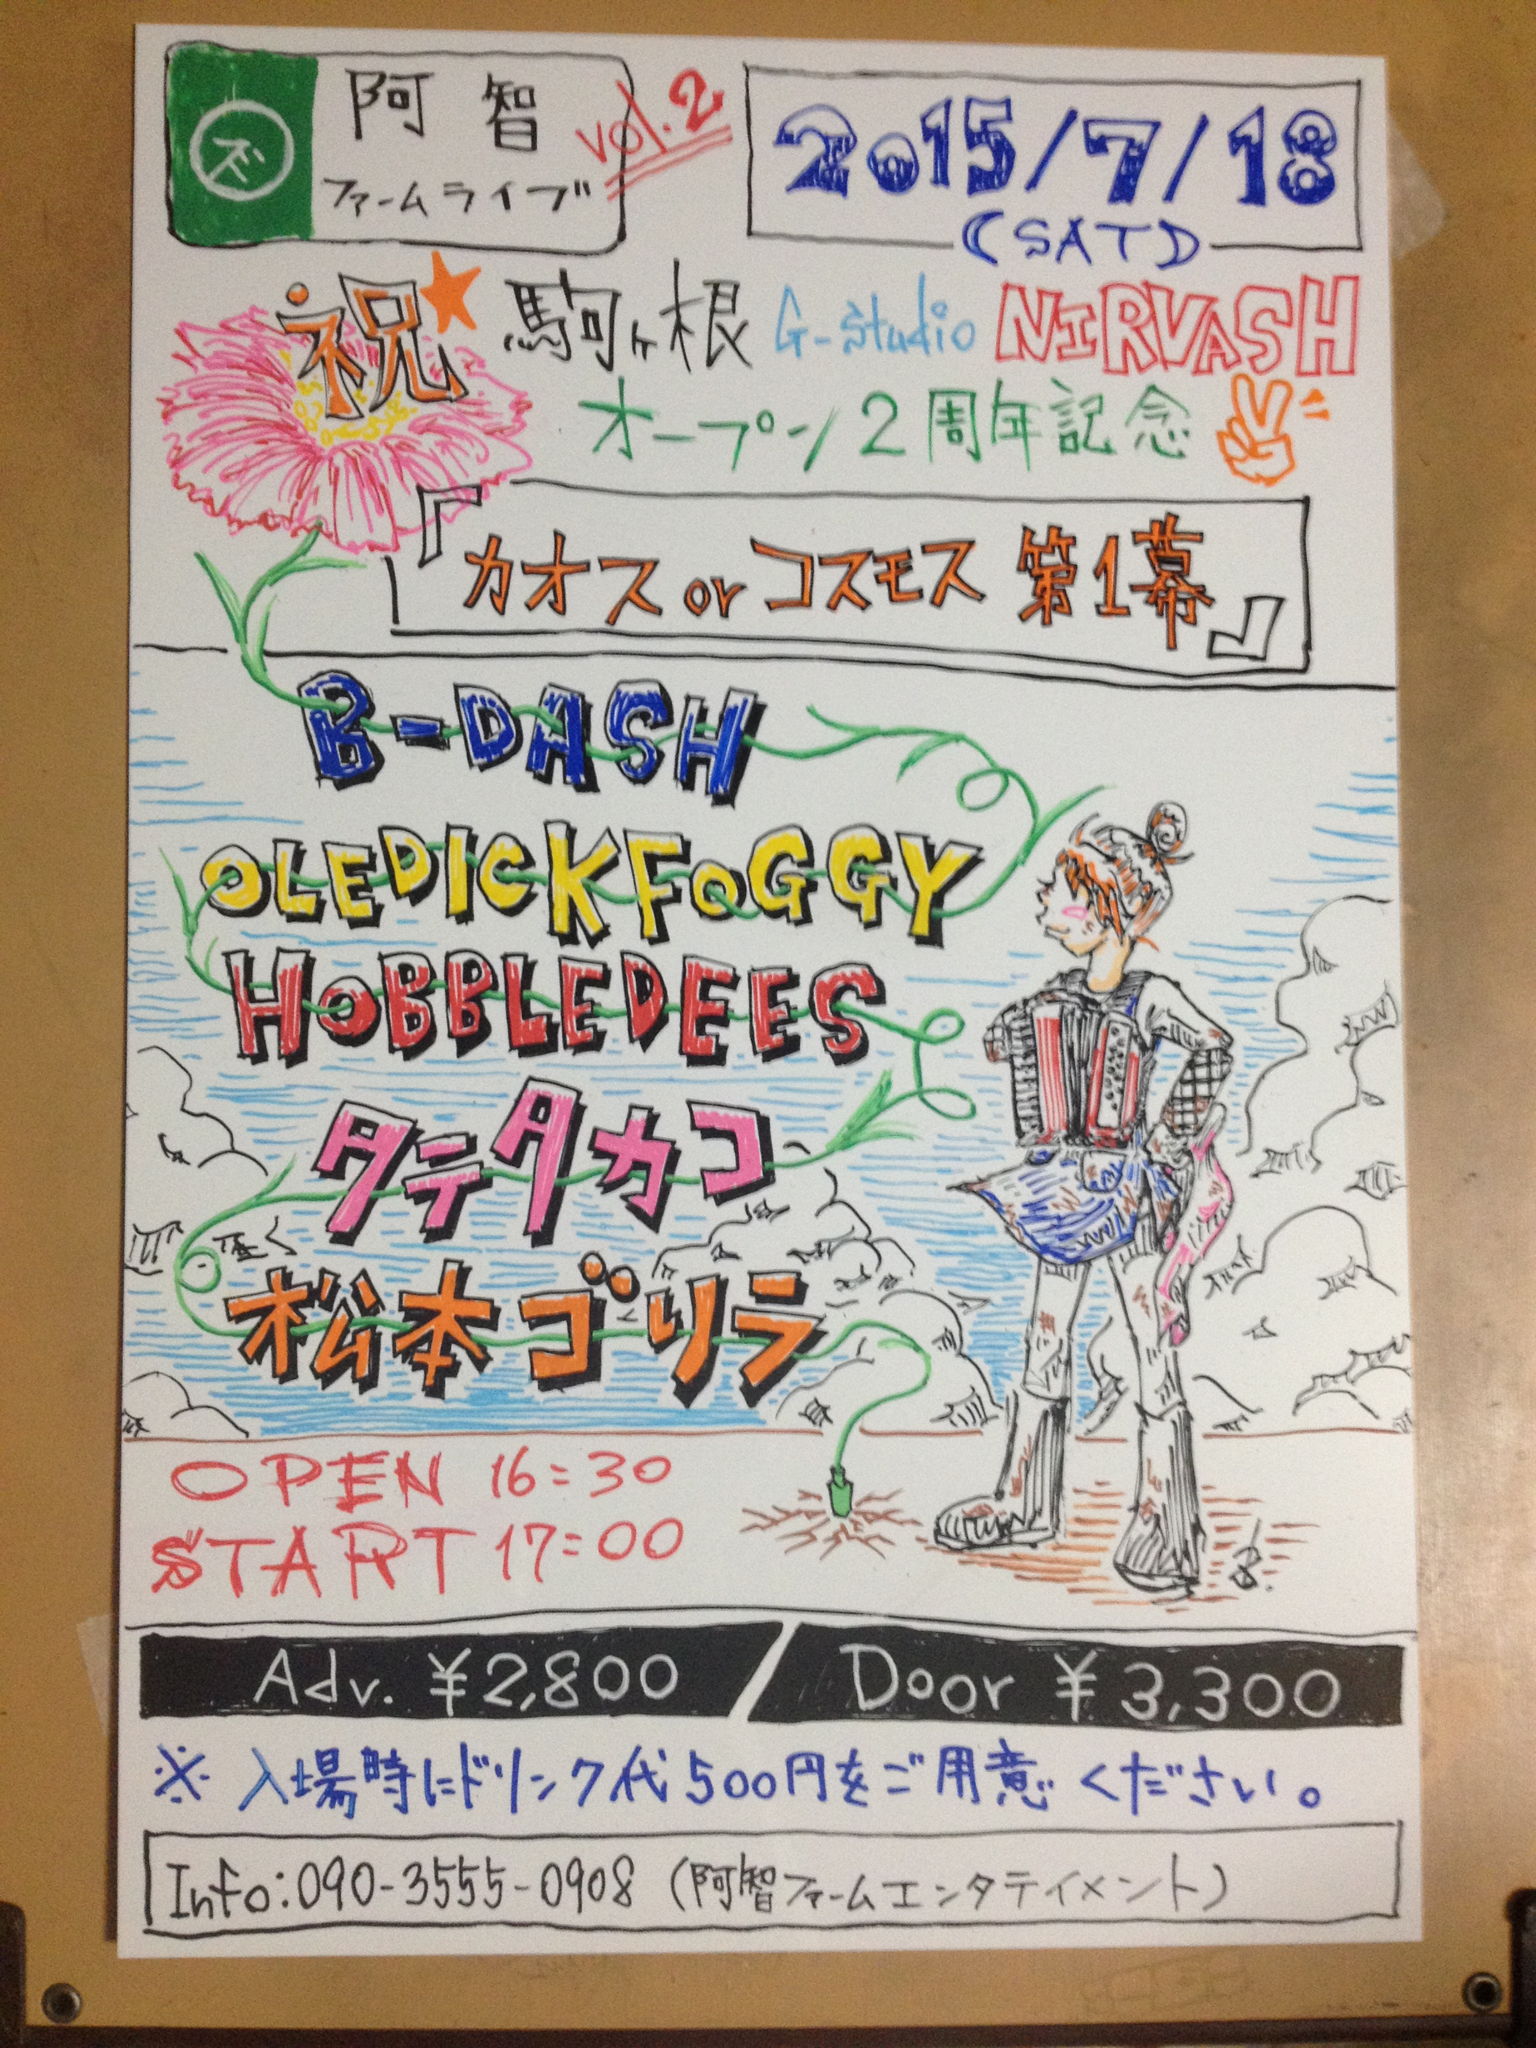 ズ
阿智
ファームライブ
vol.2
2015/7/18
(SAT)
祝 駒ヶ根 G-studio NIRVASH
オープン2周年記念
『カオス or コスモス 第1幕』
B-DASH
OLEDICKFOGGY
HOBBLEDEES
タテタカコ
松本ゴリラ
OPEN 16:30
START 17:00
Adv. ¥2,800 / Door ¥3,300
※ 入場時にドリンク代500円をご用意ください。
Info:090-3555-0908 (阿智ファームエンタテイメント)